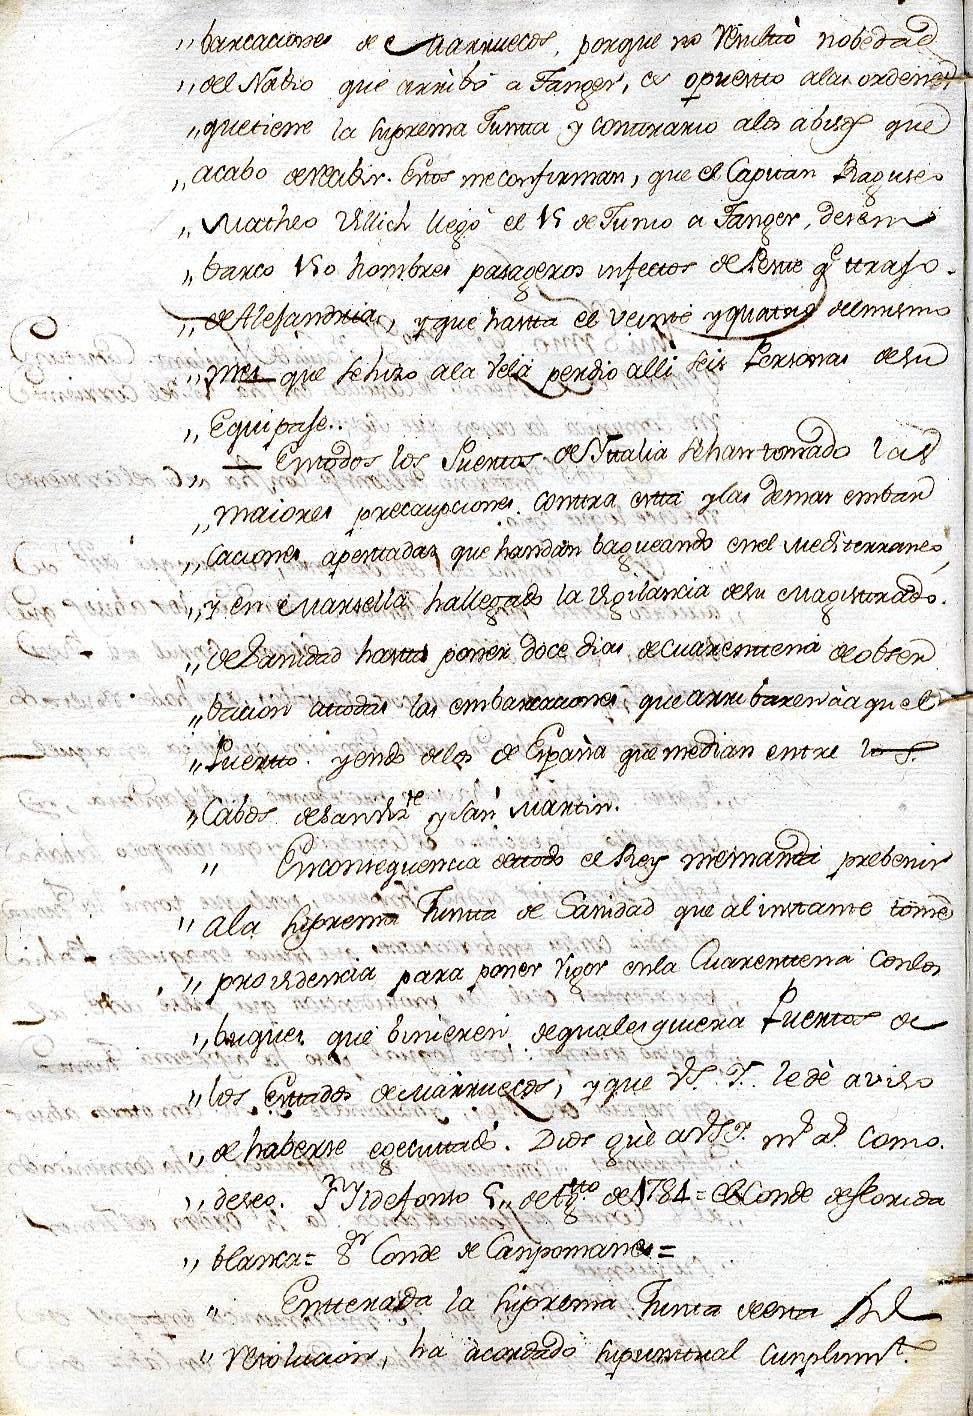 „ barcaciones de Marruecos, porque no resultó nobedad
„ del Nabio que arribó a Tanger, es opuesto alas ordenes
„ que tiene la Suprema Junta y contrario alos abisos que
„ acabo de recibir. Estos me confirman, que el Capitan Raguseo
„ Matheo Ullich llegó el 15 de Junio a Tanger, desem
„ barco 150 hombres pasageros infectos de Peste q.e trajo
„ de Alejandria, y que hasta el veinte y quatro del mismo
„ mes que se hizo ala vela perdio alli seis Personas de su
„ Equipaje.
„ En todos los Puertos de Ittalia se han tomado las
„ maiores precaupciones contra esta y las demas embar
„ caciones apestadas que handan bagueando en el Mediterraneo,
„ y en Marsella ha llegado la vigilancia de su Magistrado
„ de Sanidad hasta poner doce dias de cuarentena de obser
„ bacion atodas las embarcaciones, que arribaren a aquel
„ Puerto yendo delos de España que median entre los
„ Cabos de San Viz.te y San Martin.
„ En consequencia de todo el Rey me manda prebenir
„ ala Suprema Junta de Sanidad que al instante tome
„ providencia para poner vigor en la Cuarentena con los
„ buques que binieren de qualesquiera Puertos de
„ los Estados de Marruecos, y que V.S.Y. le dè aviso
„ de haberse egecutado. Dios guè a V.S.Y. m.s a.s como
„ deseo. S.n Yldefonso 5„ de Ag.sto de 1784 = El Conde de Florida
„ blanca = S.or Conde de Canpomanes =
„ Enterada la Suprema Junta de esta Rl
„ resolucion, ha acordado su puntual cunplim.t.